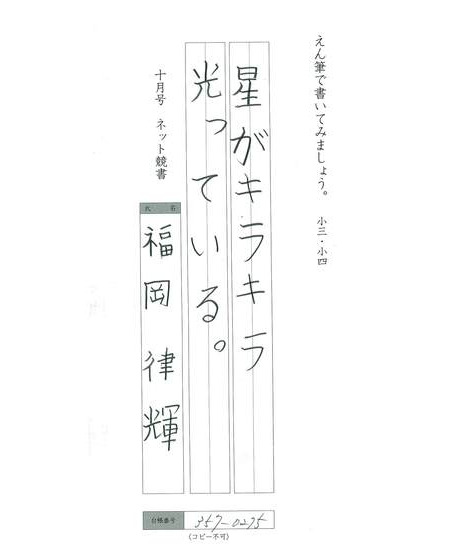 えん筆で書いてみましょう。 小三・小四
星がキラキラ
光っている。
十月号 ネット競書
氏 名
福岡律輝
台帳番号 357-0275
(コピー不可)